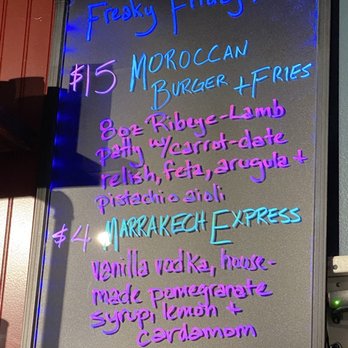 Freaky Friday!
$15 MOROCCAN
BURGER + FRIES
8oz Ribeye-Lamb
patty w/carrot-date
relish, feta, arugula +
pistachio aioli
$4 MARRAKECH EXPRESS
vanilla vodka, house-
made pomegranate
syrup, lemon +
cardamom